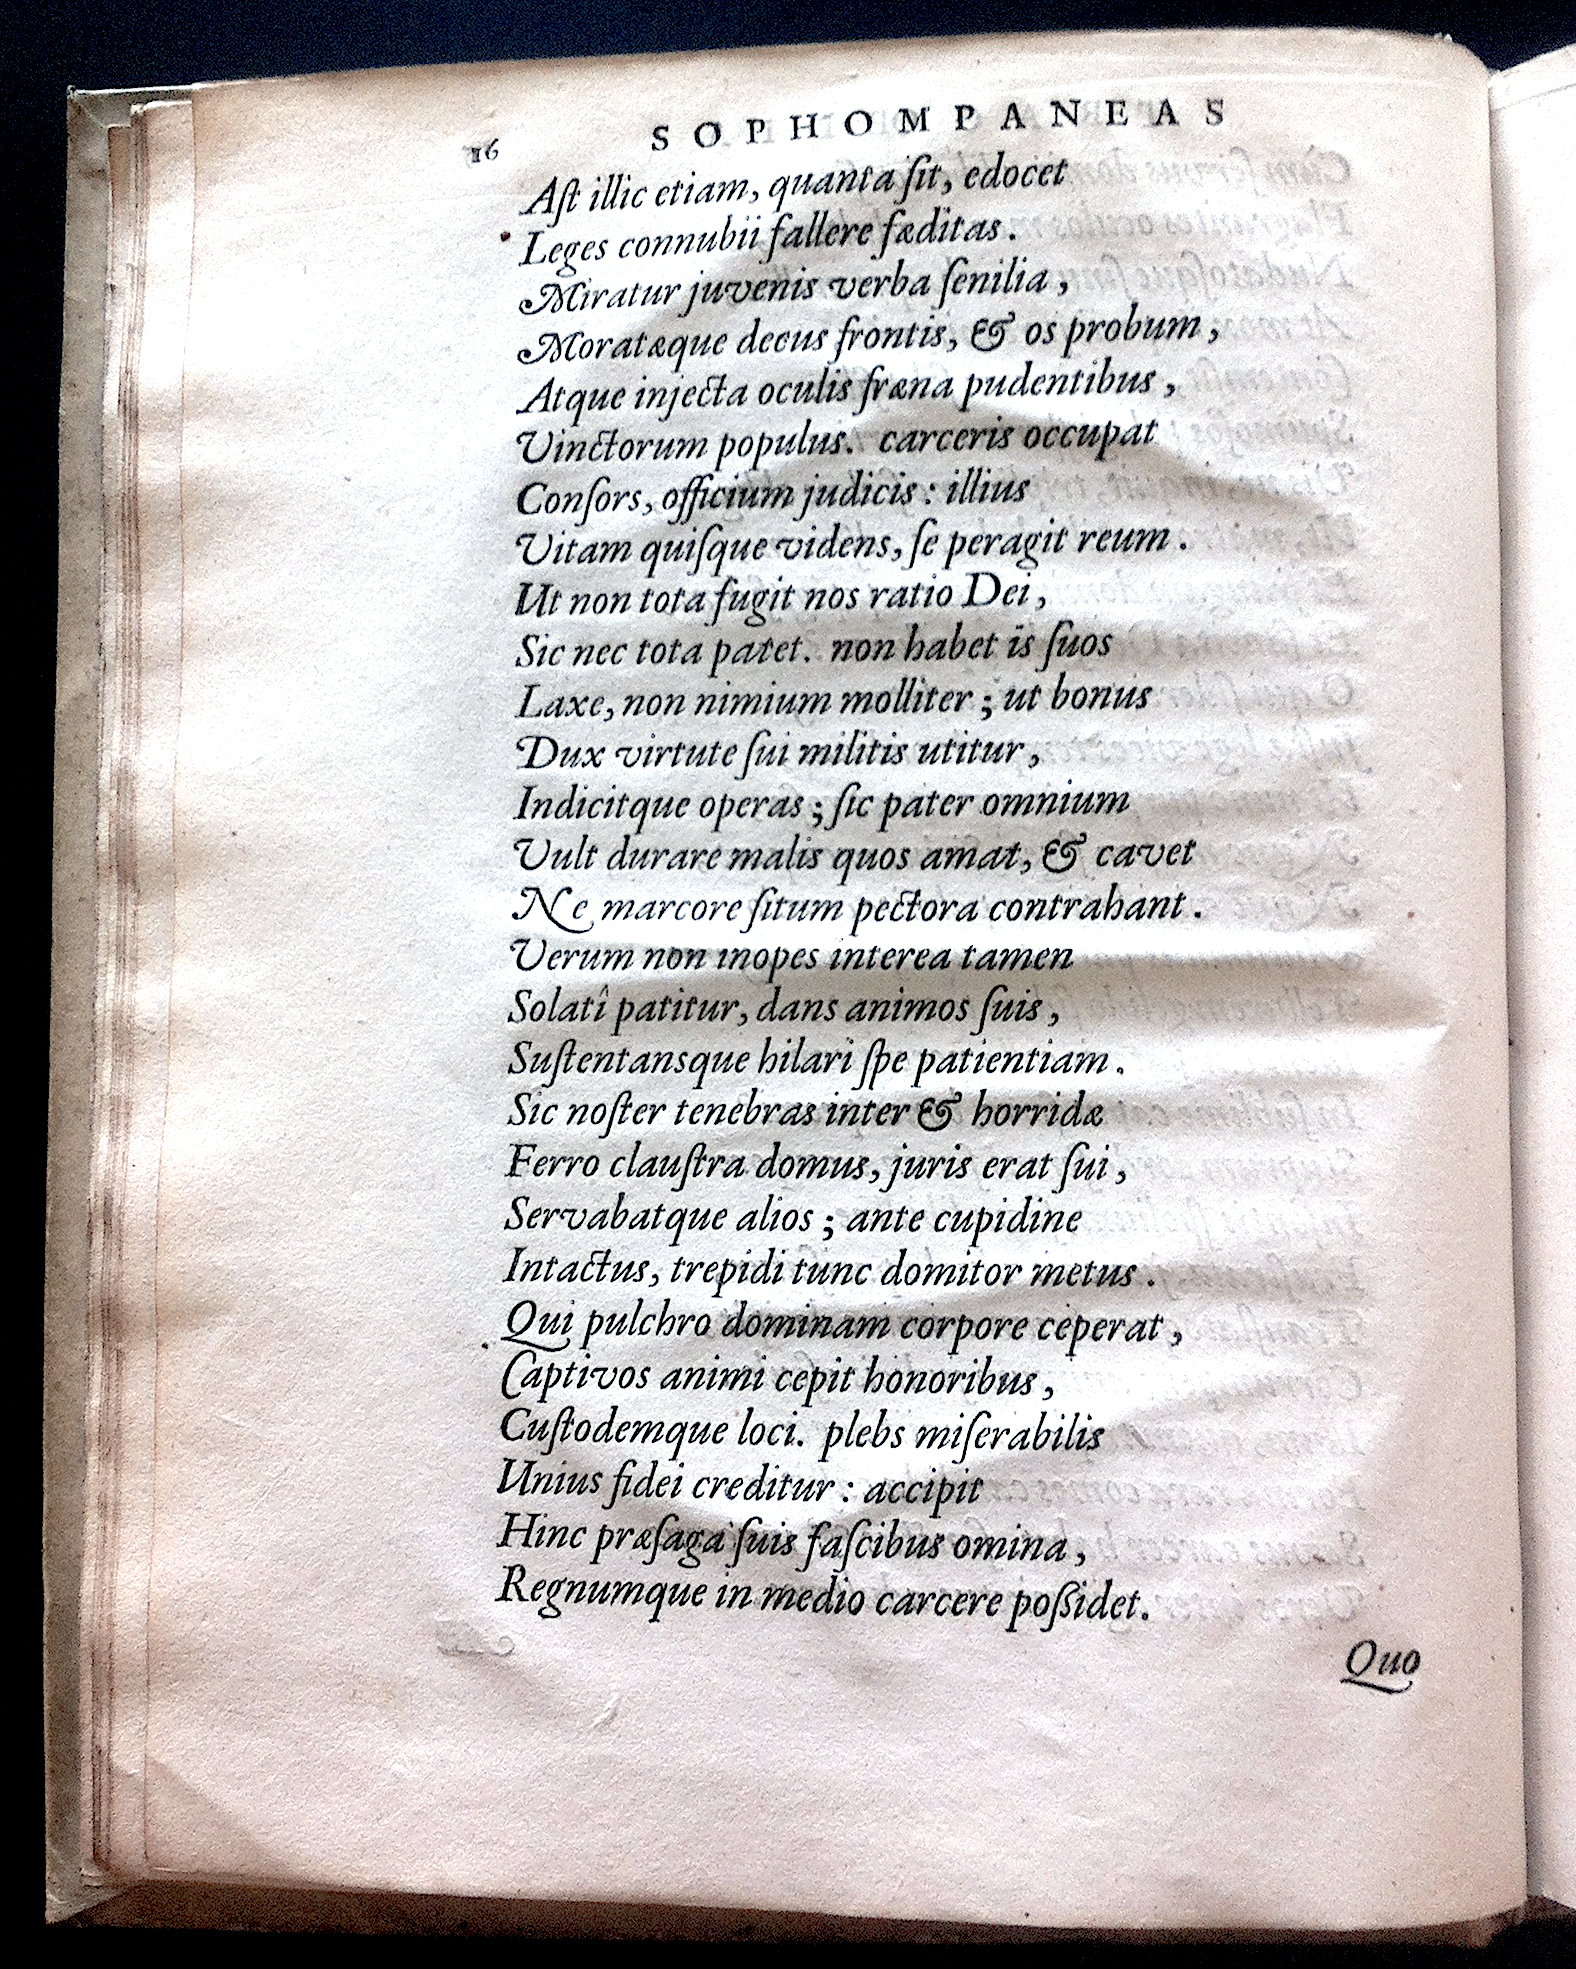 16 SOPHOMPANEAS
Aſt illic etiam, quanta ſit, edocet
Leges connubii fallere fæditas.
Miratur juvenis verba ſenilia,
Moratæque decus frontis, & os probum,
Atque injecta oculis fræna pudentibus,
Vinctorum populus. carceris occupat
Conſors, officium judicis: illius
Vitam quiſque videns, ſe peragit reum.
Ut non tota fugit nos ratio Dei,
Sic nec tota patet. non habet is ſuos
Laxe, non nimium molliter; ut bonus
Dux virtute ſui militis utitur,
Indicitque operas; ſic pater omnium
Vult durare malis quos amat, & cavet
Ne marcore ſitum pectora contrahant.
Verum non inopes interea tamen
Solatî patitur, dans animos ſuis,
Suſtentansque hilari ſpe patientiam.
Sic noſter tenebras inter & horridæ
Ferro clauſtra domus, juris erat ſui,
Servabatque alios; ante cupidine
Intactus, trepidi tunc domitor metus.
Qui pulchro dominam corpore ceperat,
Captivos animi cepit honoribus,
Cuſtodemque loci. plebs miſerabilis
Unius fidei creditur: accipit
Hinc præſaga ſuis faſcibus omina,
Regnumque in medio carcere poſſidet.
Quo